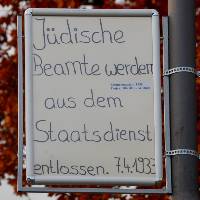 Jüdische
Beamte werden
aus dem
Staatsdienst
entlassen. 7.4.1933